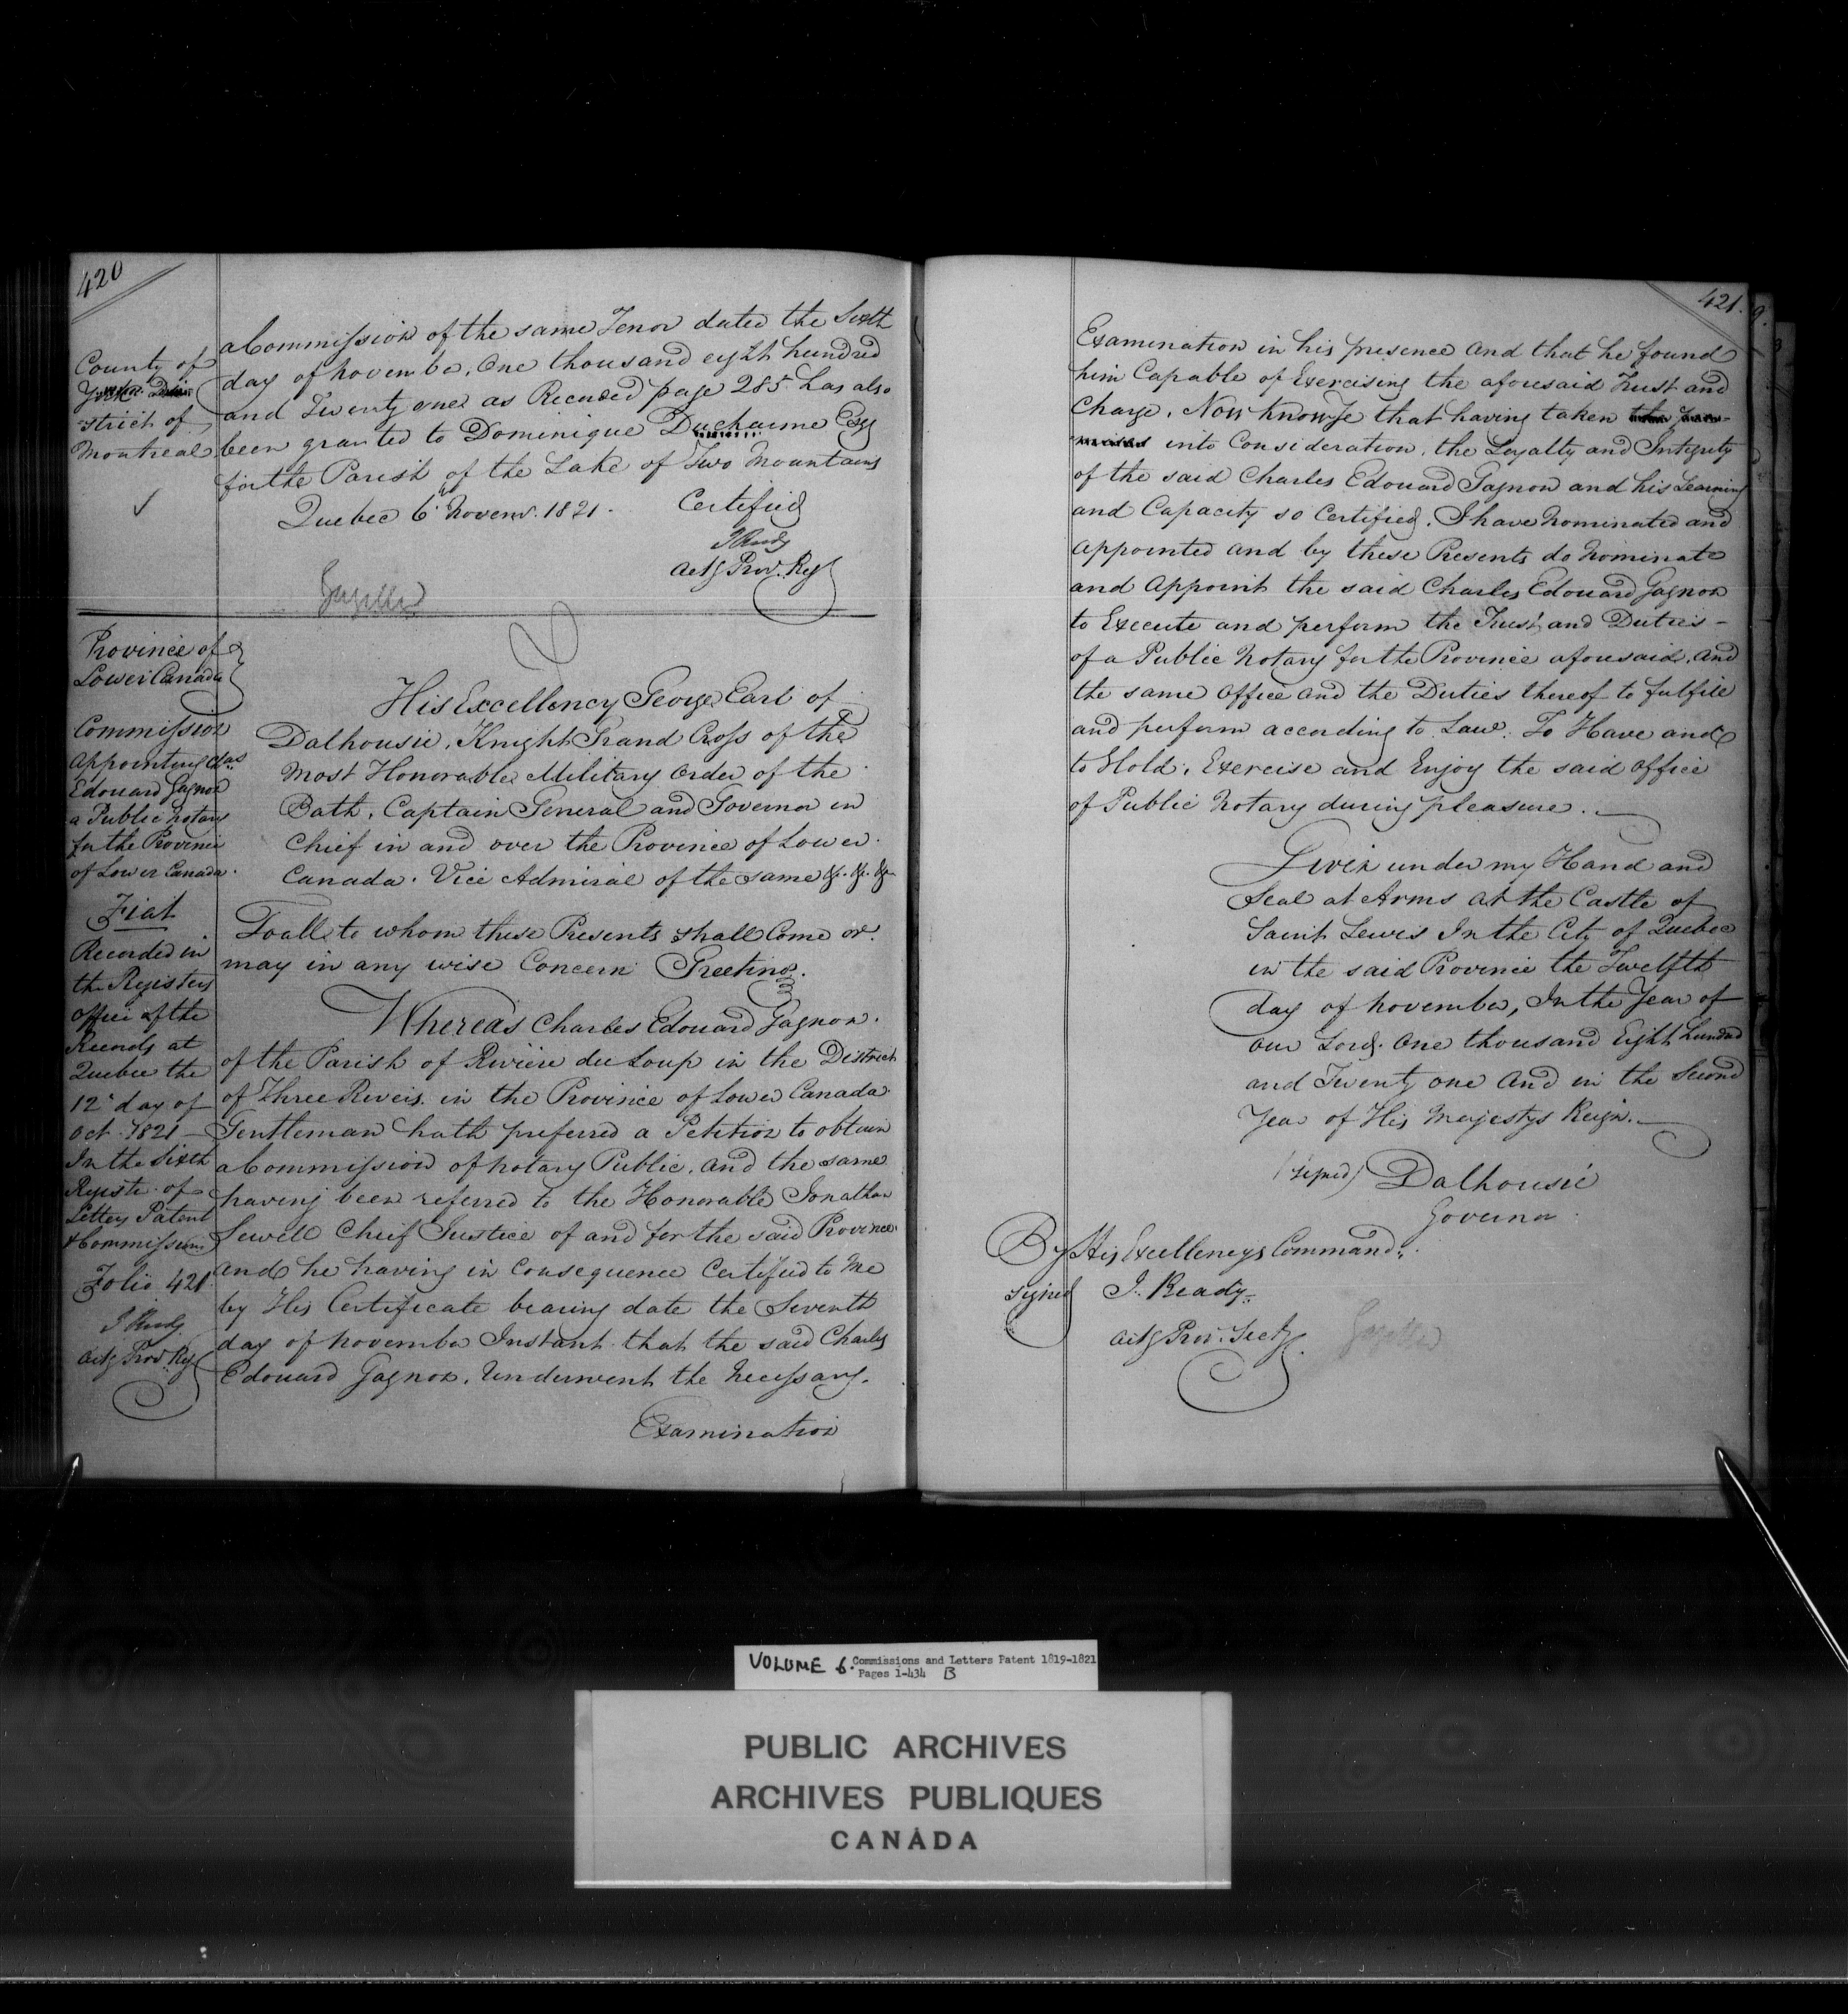 420
County of
York
strict of
Montreal
a Commission of the same Tenor dated the Sixth
day of November, One thousand eight hundred
and Twenty one as Recorded page 285 has also
been granted to Dominique Ducharme Esq
for the Parish of the Lake of Two Mountains
Quebec 6th Novemr. 1821.
Certified
J Ready
Actg Prov. Reg
Gazetted
Province of
Lower Canada
Commission
Appointing Chas
Edouard Gagnon
a Public Notary
for the Province
of Lower Canada.
Fiat
Recorded in
the Registers
Office of the
Records at
Quebec the
12th day of
Oct. 1821 -
In the Sixth
Registr. of
Letters Patent
& Commissions
Folio 421
J Ready
Actg Prov. Reg
His Excellency George Earl of
Dalhousie, Knight Grand Cross of the
Most Honorable Military Order of the
Bath, Captain General and Governor in
Chief in and over the Province of Lower
Canada. Vice Admiral of the same &c. &c. &c
To all to whom these Presents shall Come or
may in any wise Concern Greeting.
Whereas Charles Edouard Gagnon.
of the Parish of Rivière du Loup in the District
of Three Rivers in the Province of Lower Canada
Gentleman hath preferred a Petition to obtain
a Commission of Notary Public, and the same
having been referred to the Honorable Jonathan
Sewell Chief Justice of and for the said Province
and he having in Consequence Certified to Me
by His Certificate bearing date the Seventh
day of November Instant that the said Charles
Edouard Gagnon, Underwent the Necessary.
Examination
421.
Examination in his presence and that he found
him Capable of Exercising the aforesaid Trust and
Charge. Now Know Ye that having taken
into Consideration, the Loyalty and Integrity
of the said Charles Edouard Gagnon and his Learning
and Capacity so Certified. I have Nominated and
Appointed and by these Presents do Nominate
and Appoint the said Charles Edouard Gagnon
to Execute and perform the Trust and Duties -
of a Public Notary for the Province aforesaid, and
the same Office and the Duties thereof to fulfill
and perform according to Law. To Have and
to Hold, Exercise and Enjoy the said Office
of Public Notary during pleasure.
Given under my Hand and
Seal at Arms at the Castle of
Saint Lewis In the City of Quebec
in the said Province the Twelfth
day of November, In the Year of
Our Lord. One thousand Eight hundred
and Twenty one And in the Second
Year of His Majestys Reign.
(Signed) Dalhousie
Governor.
By His Excellencys Command,
Signed J. Ready
Actg Prov. Secty.
Gazetted
VOLUME 6. Commissions and Letters Patent 1819-1821
Pages 1-434 B
PUBLIC ARCHIVES
ARCHIVES PUBLIQUES
CANADA